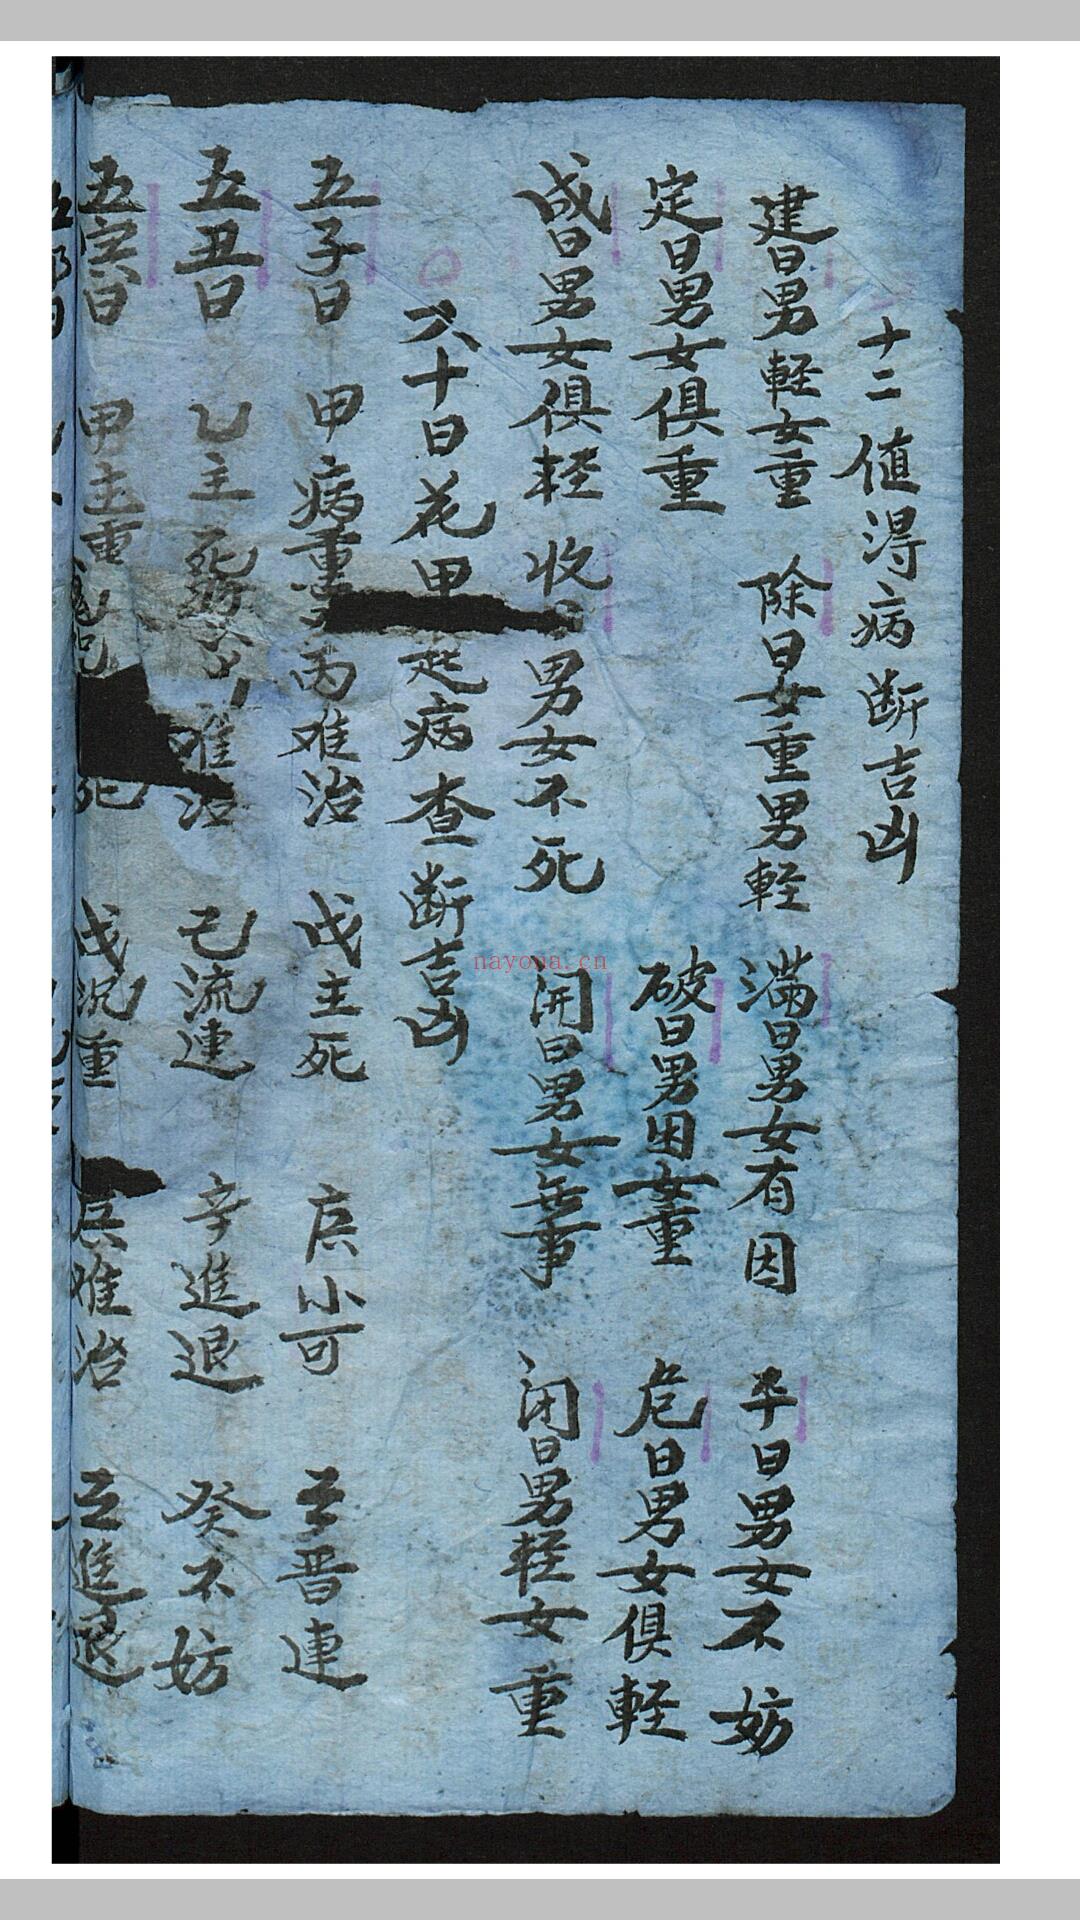 十二值得病断吉凶
建日男輕女重 除日女重男輕 满日男女有因 平日男女不妨
定日男女俱重 破日男困女重 危日男女俱輕
成日男女俱轻 收日男女不死 開日男女無事 闭日男轻女重
六十日花甲 起病查断吉凶
五子日 甲病重 丙难治 戊主死 庚小可 壬晋連
五丑日 乙主死 难治 己流連 辛進退 癸不妨
五寅日 甲主重 死 戊沉重 庚难治 壬進退
nayona.cn